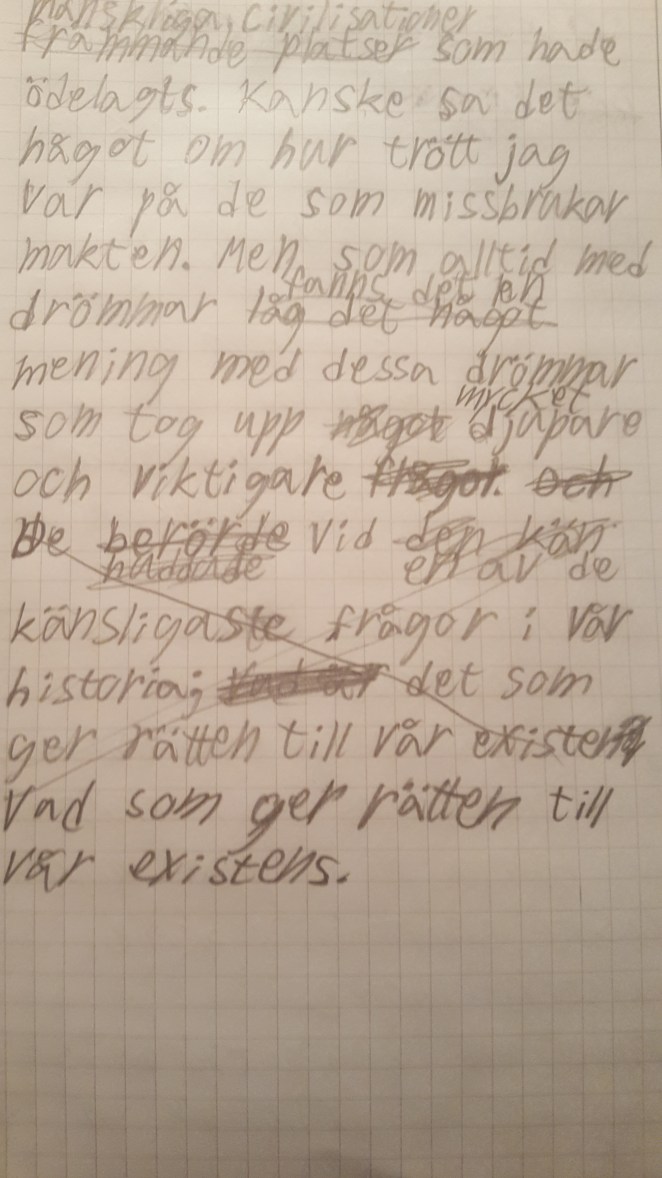 mänskliga civilisationer
främmande platser som hade
ödelagts. Kanske sa det
något om hur trött jag
var på de som missbrukar
makten. Men som alltid med
fanns det en
drömmar låg det något
mening med dessa drömmar
mycket
som tog upp något djupare
och viktigare frågor. och
De berörde vid den kän
nuddade en av de
känsligaste frågor i vår
historia; vad är det som
ger rätten till vår existens
Vad som ger rätten till
vår existens.